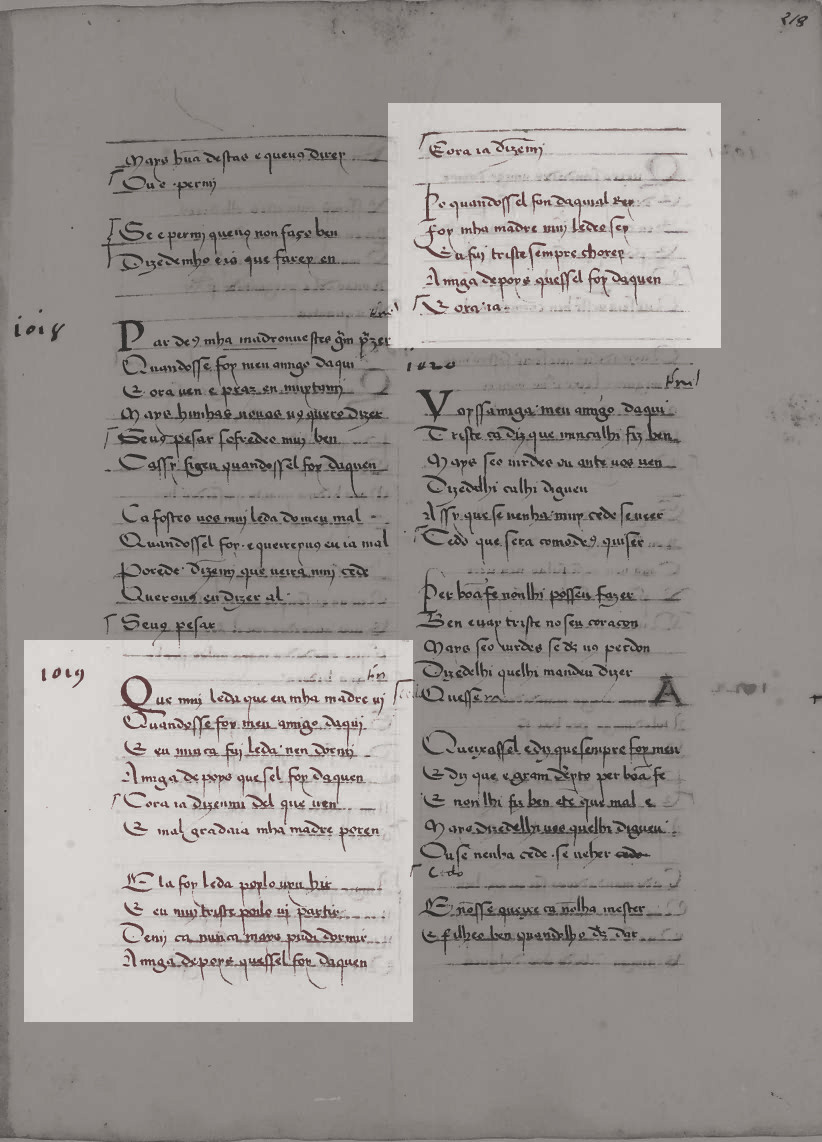 218
Mays hũa destas e queuꝯ direy
Que permi
Se e permj queuꝯ non faço ben
Dizedemho e ia que farey en
1018
Par deꝯ mha madronuestes grãm pʳzer
Quandosse foy meu amigo daqui
E ora uen e praz en muytomj
Mays hunhas nouas uꝯ quero dizer
Seuꝯ pesar sofredeo muj ben
Cassy figeu quandossel foy daquen
Ca fostes uos muj leda do meu mal
Quandossel foy e queireyuꝯ eu ia mal
Porede dizemj que ueirá muj cede
Querouꝯ eu dizer al
Seuꝯ pesar
1019
Que muj leda que eu mha madre uj
Quandosse foy meu amigo daqui
E eu nunca fuj leda nen dormj
Amiga depoys que sel foy daquen
Cora ia dizenmi del que uen
E mal gradaia mha madre poren
Ela foy leda poylo uyu hir
E eu muj triste poilo uj partir
Cemj ca nunca mays pudi dormir
Amiga depoys quessel foy daquen
Eora ia dizemj
Pe quandossel fon daquial Rey
Foy mha madre muj ledro sey
E eu fuj triste sempre chorey
Amiga depoys quessel foy daquen
E ora ia
1020
Voyssamiga meu amigo daqui
Triste ca diz que nuncalhi fiz ben
Mays seo uirdes ou ante uos uen
Dizedelhi calhi digueu
Assy que se uenha muy cede se ueer
Cedo que sera comodeꝯ quiser
Per bõa fe nonlhi possen fazer
Ben euay triste no seu coraçon
Mays seo uirdes se dꝯ uꝯ perdon
Dizedelhi quelhi mandeu dizer
Quesse
A
Queixassel edij que sempre foy meu
E dij que e gram deʳyto per bõa fe
E nonlhi fiz ben etẽ que mal e
Mays dizedelhi uos quelhi digueu
Quse uenha cede se ueher cedo
Cedo
E nõsse queyxe ca nõlha mester
E filheo ben quandolho dꝯ der